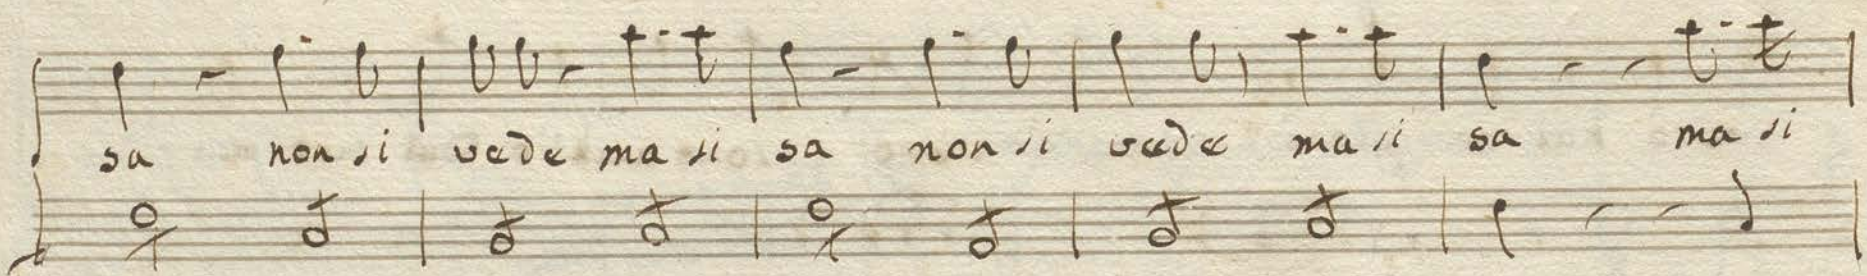 sa non si vede ma si sa non si vede ma si sa ma si